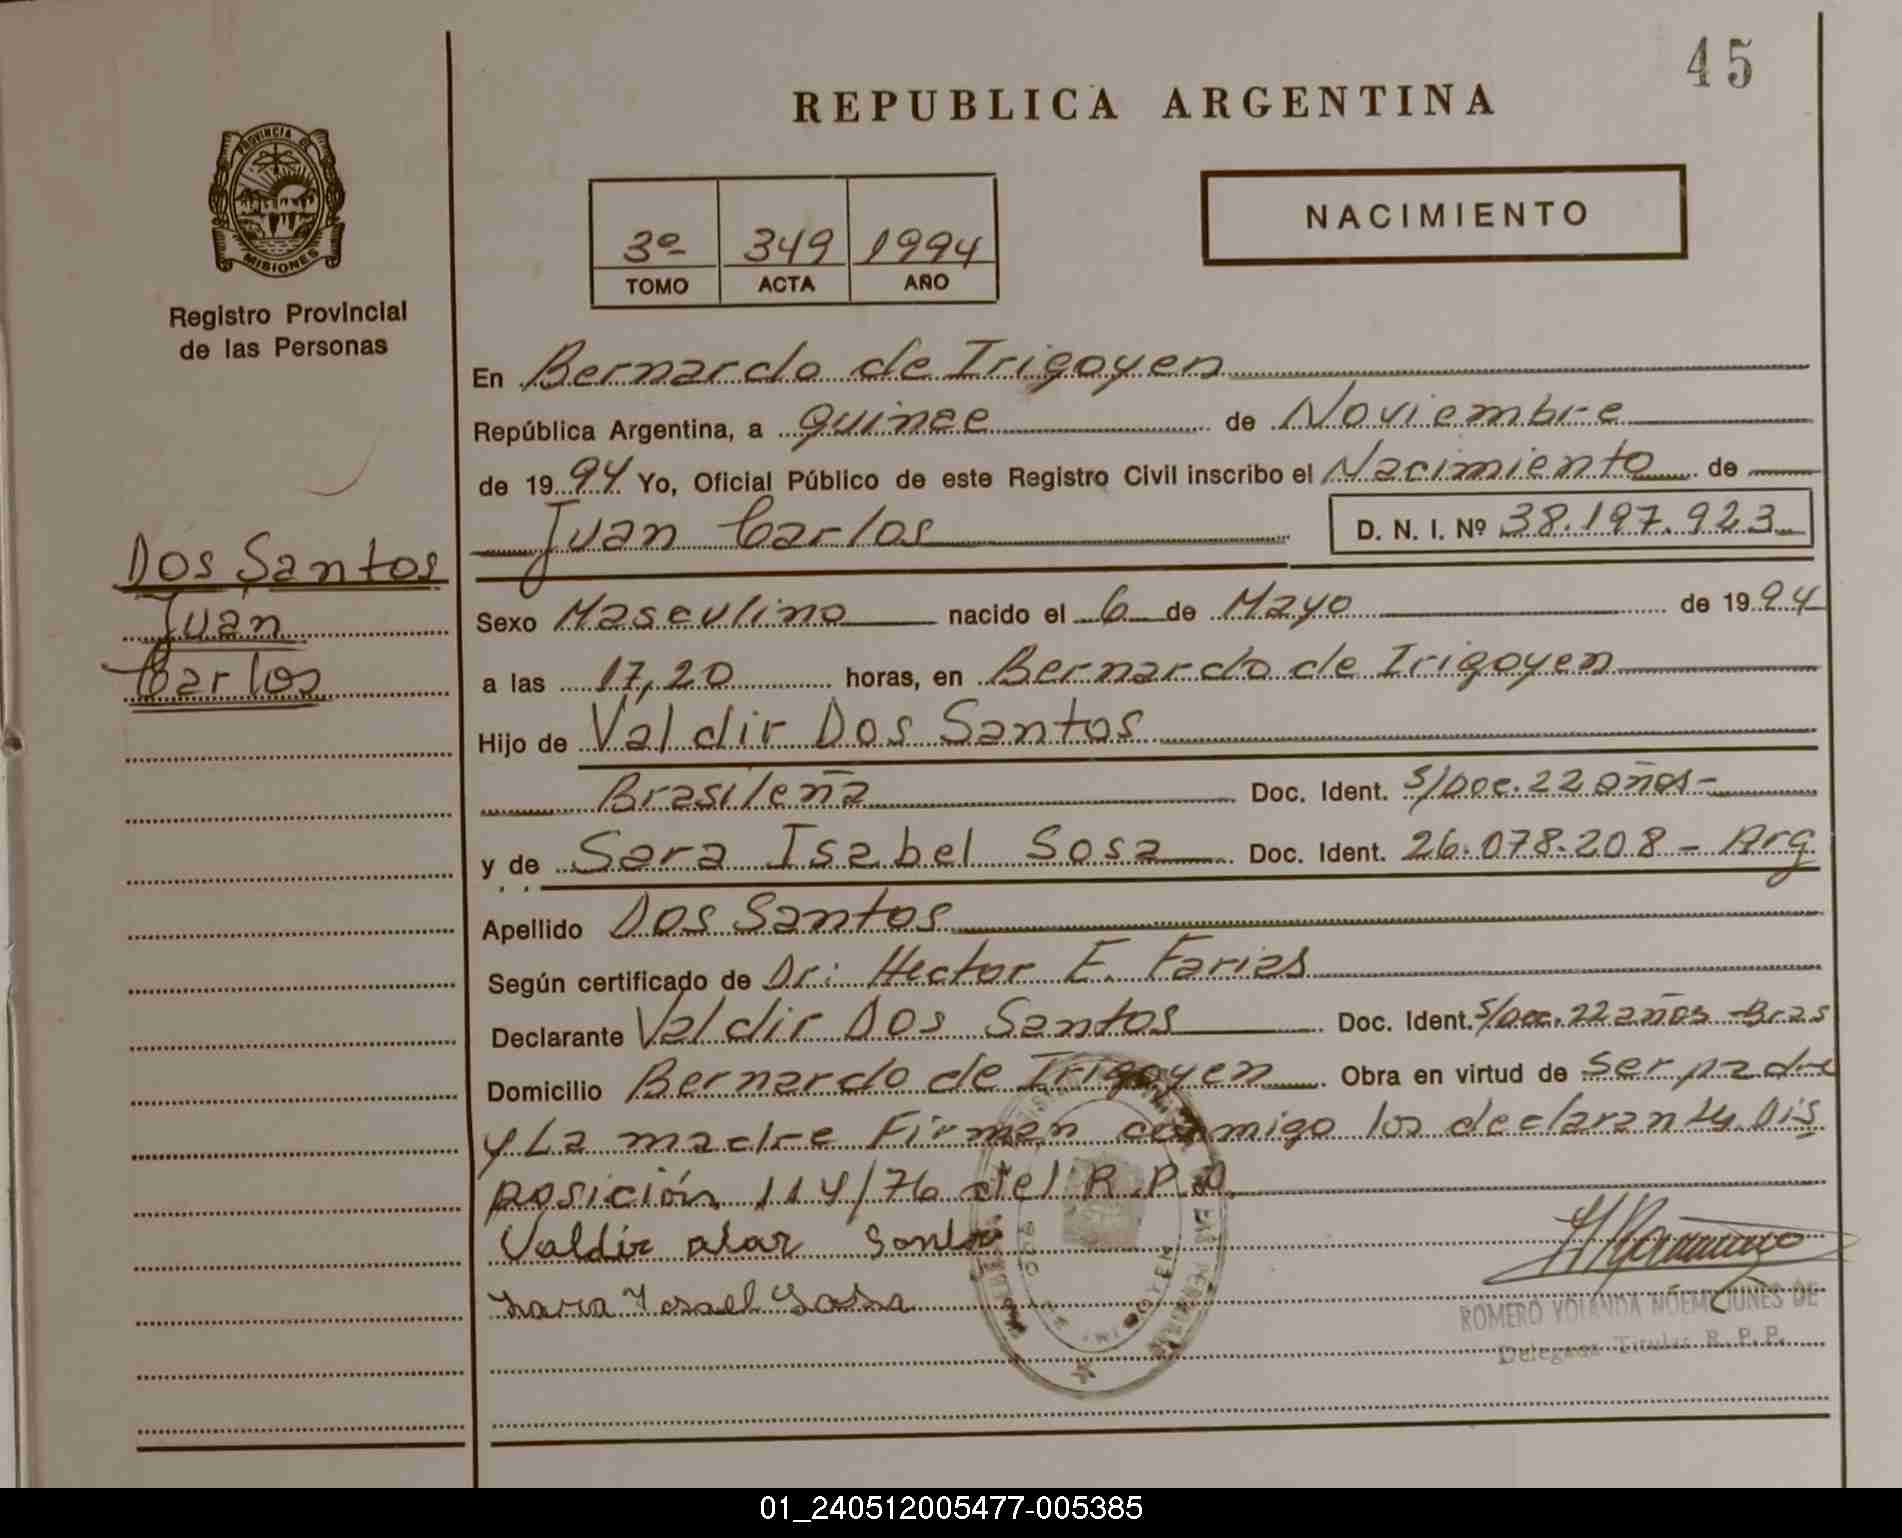 45
REPUBLICA ARGENTINA
PROVINCIA DE
MISIONES
Registro Provincial
de las Personas
3º 349 1994
TOMO ACTA AÑO
NACIMIENTO
En Bernardo de Irigoyen
República Argentina, a quince de Noviembre
de 1994 Yo, Oficial Público de este Registro Civil inscribo el Nacimiento de
Juan Carlos D. N. I. Nº 38.197.923
Dos Santos
Juan
Carlos
Sexo Masculino nacido el 6 de Mayo de 1994
a las 17,20 horas, en Bernardo de Irigoyen
Hijo de Valdir Dos Santos
Brasileña Doc. Ident. S/Doc. 22 años-
y de Sara Isabel Sosa Doc. Ident. 26.078.208 - Arg
Apellido Dos Santos
Según certificado de Dr: Hector E. Farias
Declarante Valdir Dos Santos Doc. Ident. S/Doc. 22 años - Bras
Domicilio Bernardo de Irigoyen Obra en virtud de ser padre
y La madre Firman conmigo los declarantes. Dis
posición 114/76 del R.P.P.
Valdir
ROMERO YOLANDA NOEMI JUNES DE
Delegada Titular R. P. P.
01_240512005477-005385